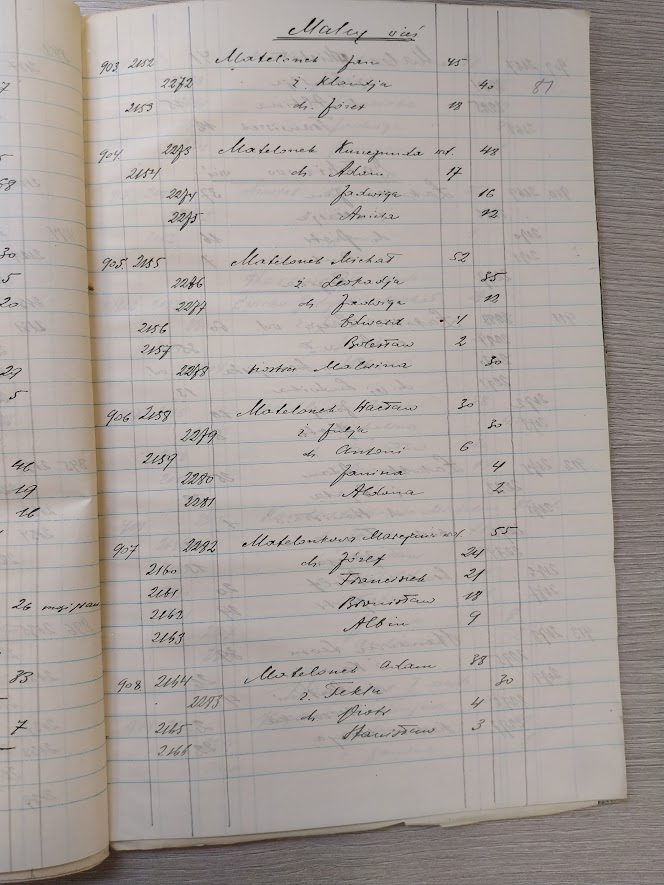 Małcy wieś
81
903 2152 Matelonek Jan 45
2272 ż. Klaudja 40
2153 dz. Józef 18
904 2273 Matelonek Kunegunda wd. 48
2154 dz. Adam 17
2274 Jadwiga 16
2275 Aniela 12
905 2155 Matelonek Michał 52
2276 ż. Leokadja 35
2277 dz. Jadwiga 12
2156 Edward 4
2157 Bolesław 2
2278 siostra Malwina 30
906 2158 Matelonek Wacław 30
2279 ż. Julja 30
2159 dz. Antoni 6
2280 Janina 4
2281 Aldona 2
907 2282 Matelonkowa Marcjanna wd. 55
2160 dz. Józef 24
2161 Franciszek 21
2162 Bronisław 18
2163 Albin 9
908 2164 Matelonek Adam 38
2283 ż. Tekla 30
2165 dz. Piotr 4
2166 Stanisław 3
30
5
20
29
5
46
19
16
26
33
7